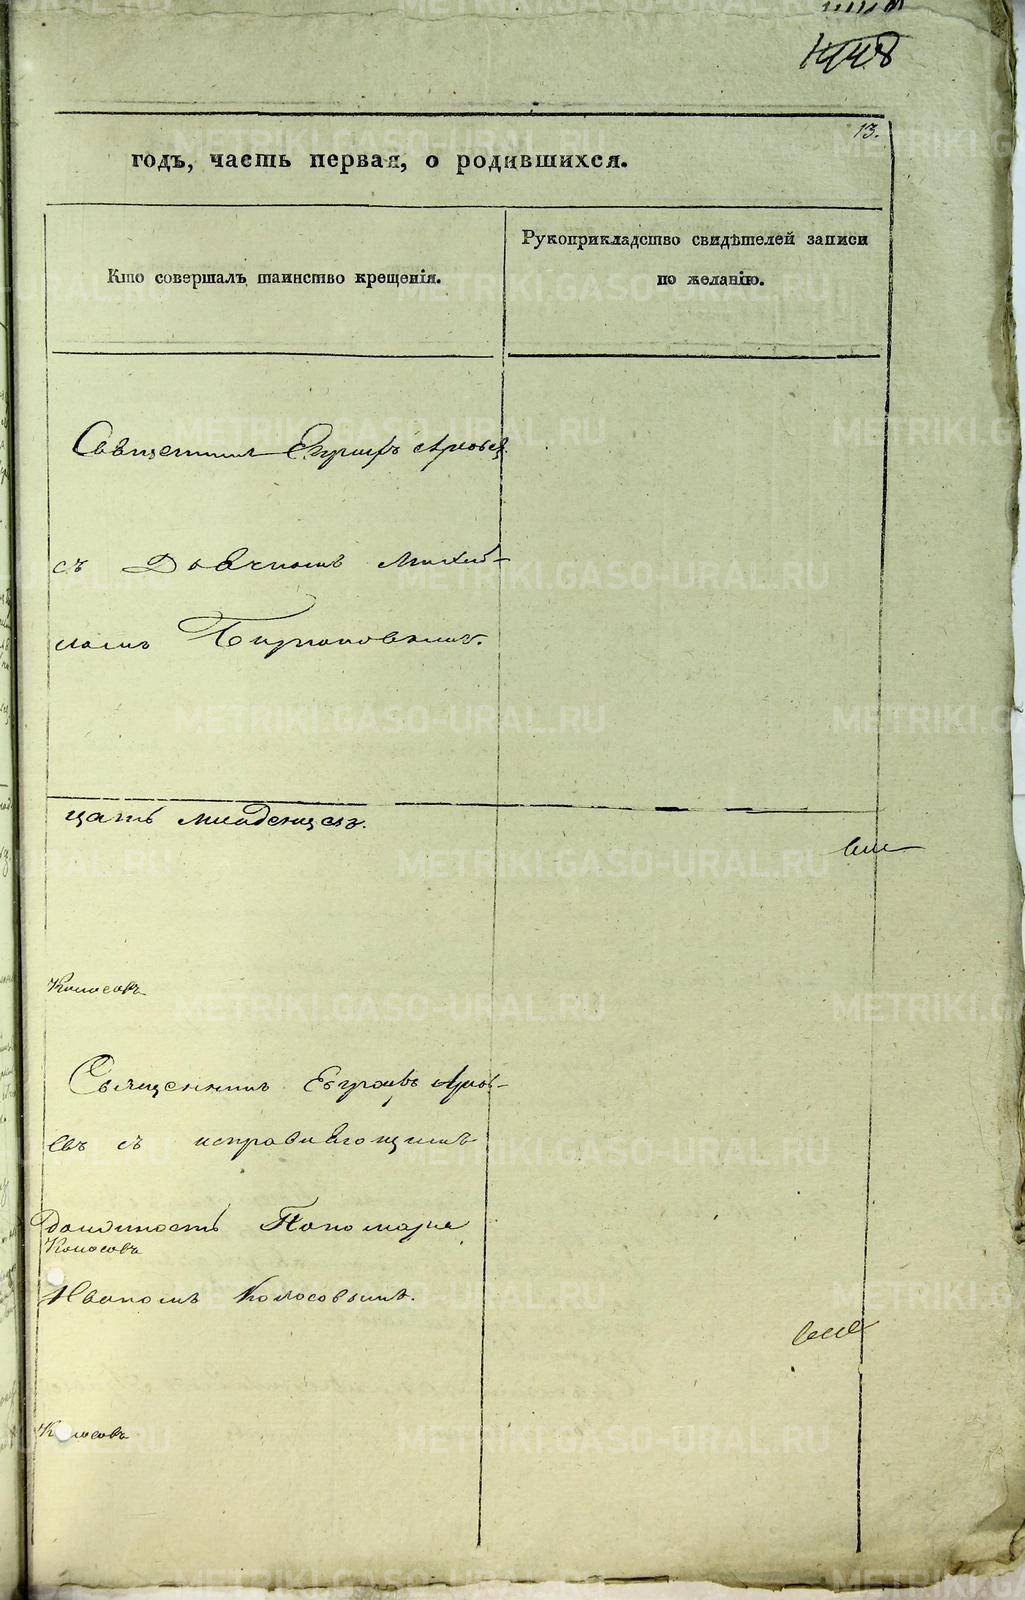 13.
годъ, часть первая, о родившихся.
Кто совершалъ таинство крещенія.
Рукоприкладство свидѣтелей записи
по желанію.
Священник Евграфъ
съ Дьячкомъ Михаи-
ломъ
цать младенцевъ.
Колосовъ
Священникъ Евграфъ
евъ съ исправляющимъ
должность Пономаря
Колосовъ
Иваномъ Колосовымъ.
Колосовъ
METRIKI.GASO-URAL.RU